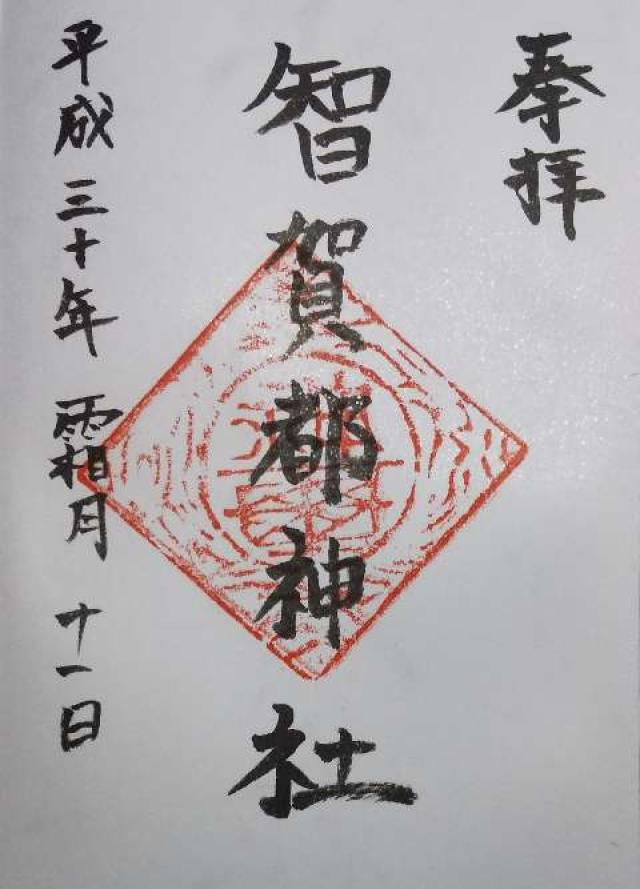 奉拝
智賀都神社
平成三十年 霜月 十一日